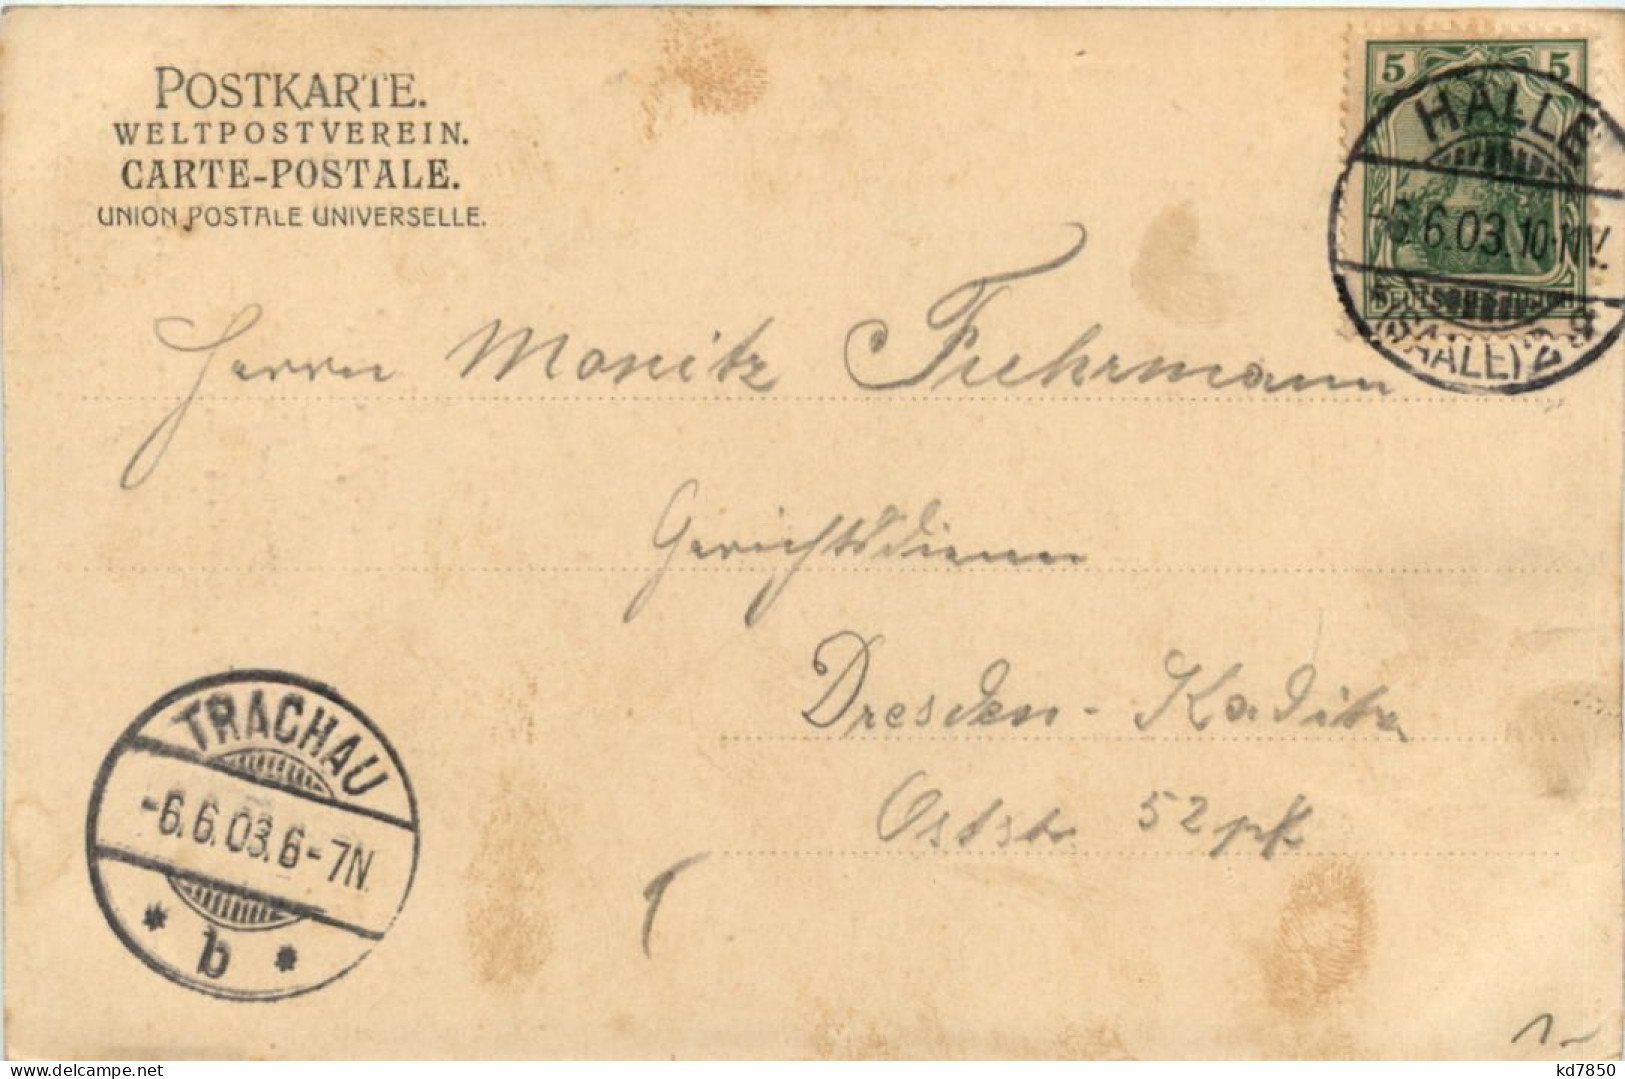 POSTKARTE.
WELTPOSTVEREIN.
CARTE-POSTALE.
UNION POSTALE UNIVERSELLE.
5 5
DEUTSCHES REICH
HALLE
-6.6.03.10-11V.
(SAALE) 2
Herrn Moritz Fuhrmann
Gerichtsdiener
Dresden - Kaditz
Oststr 52
TRACHAU
-6.6.03.6-7N.
* b *
1.-
kd7850